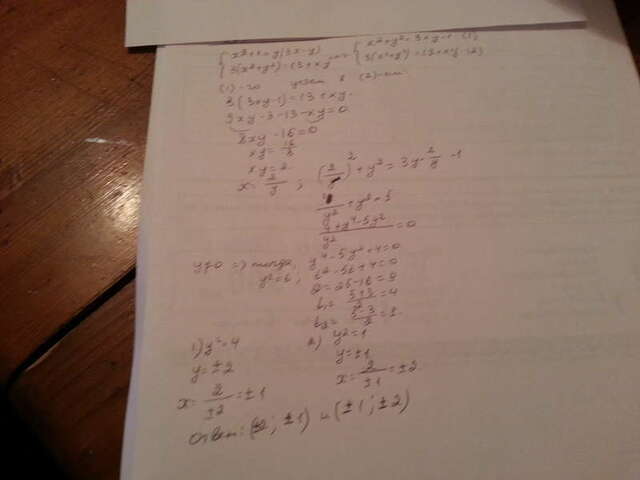 x²+1=y(3x-y)
3(x²+y²)=13+xy
x²+y²=3xy-1 (1)
3(x²+y²)=13+xy (2)
(1)-го (2)-ое
3(3xy-1)=13+xy
9xy-3-13-xy=0
8xy-16=0
xy=16/8
xy=2
x=2/y ; (2/y)²+y²=3y·2/y-1
4/y²+y²=5
(4+y⁴-5y²)/y²=0
y≠0 => тогда y⁴-5y²+4=0
y²=t; t²-5t+4=0
D=25-16=9
t₁=(5+3)/2=4
t₂=(5-3)/2=1
1) y²=4
y=±2
x=2/±2=±1
2) y²=1
y=±1
x=2/±1=±2
Ответ: (±2; ±1) и (±1; ±2)